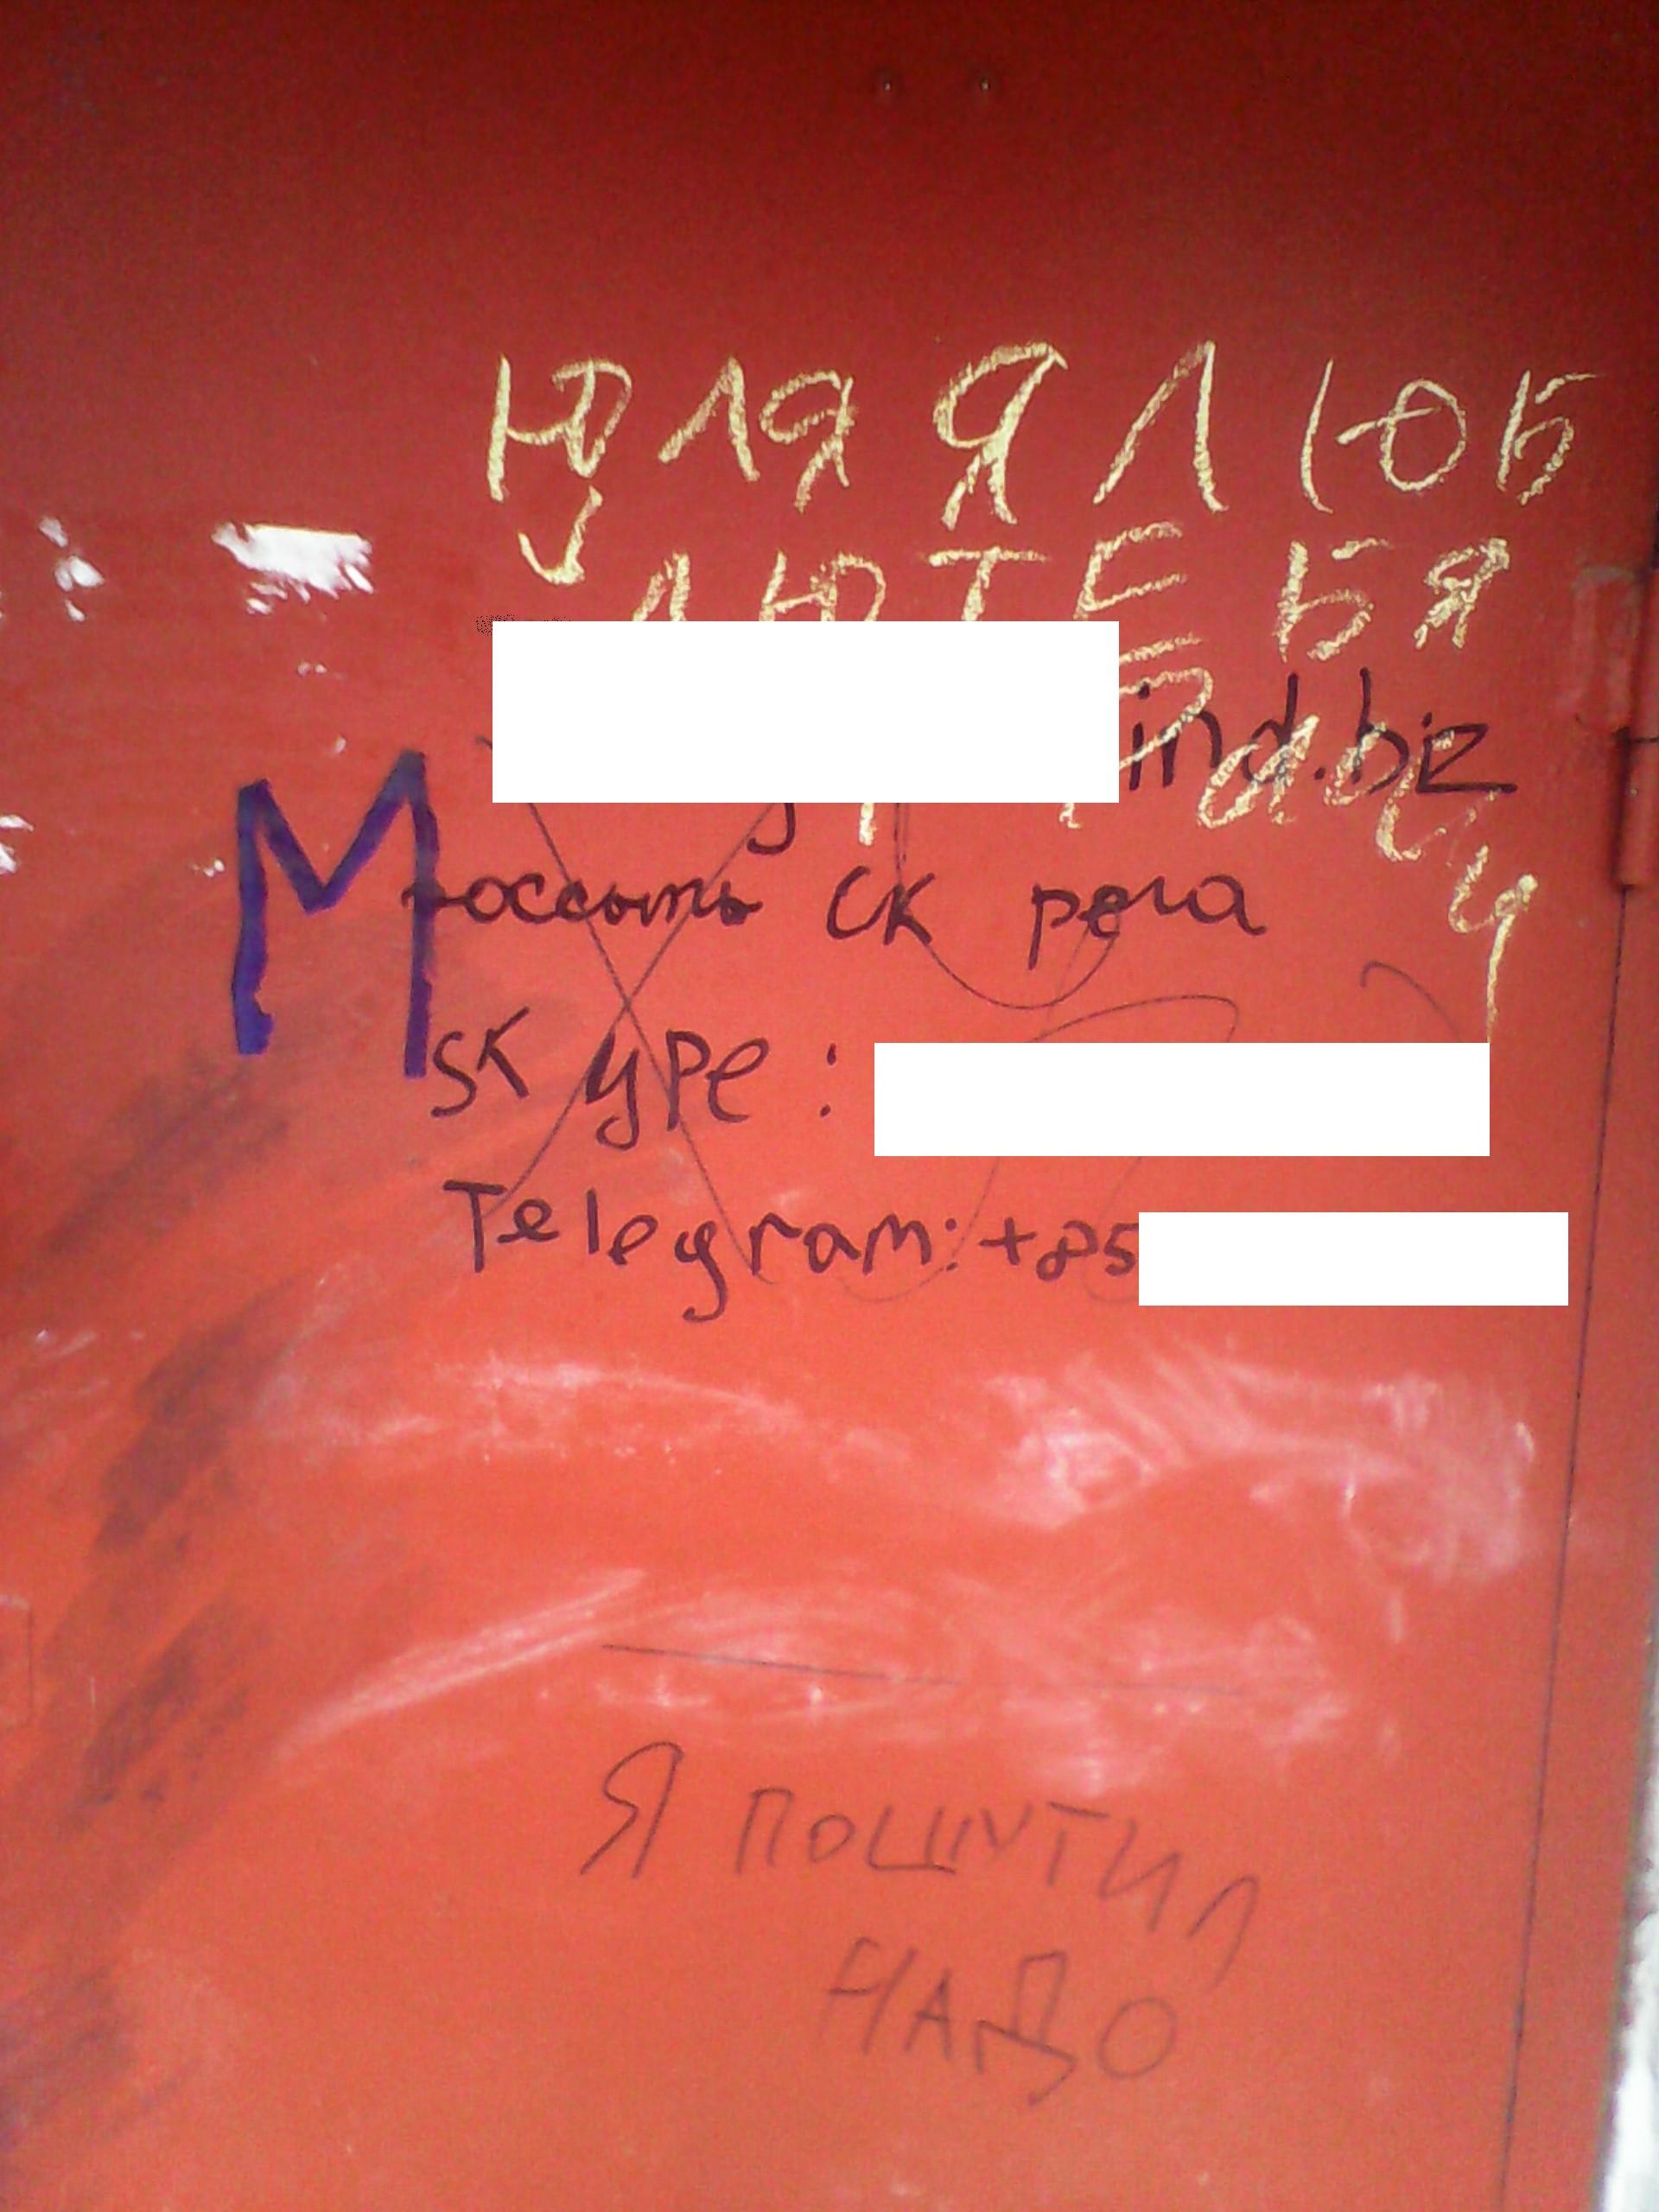 ЮЛЯ Я ЛЮБ
ЛЮ ТЕБЯ
ind.biz
М
россыпь ск рега
skype:
Telegram: +85
Я ПОШУТИЛ
НАДО